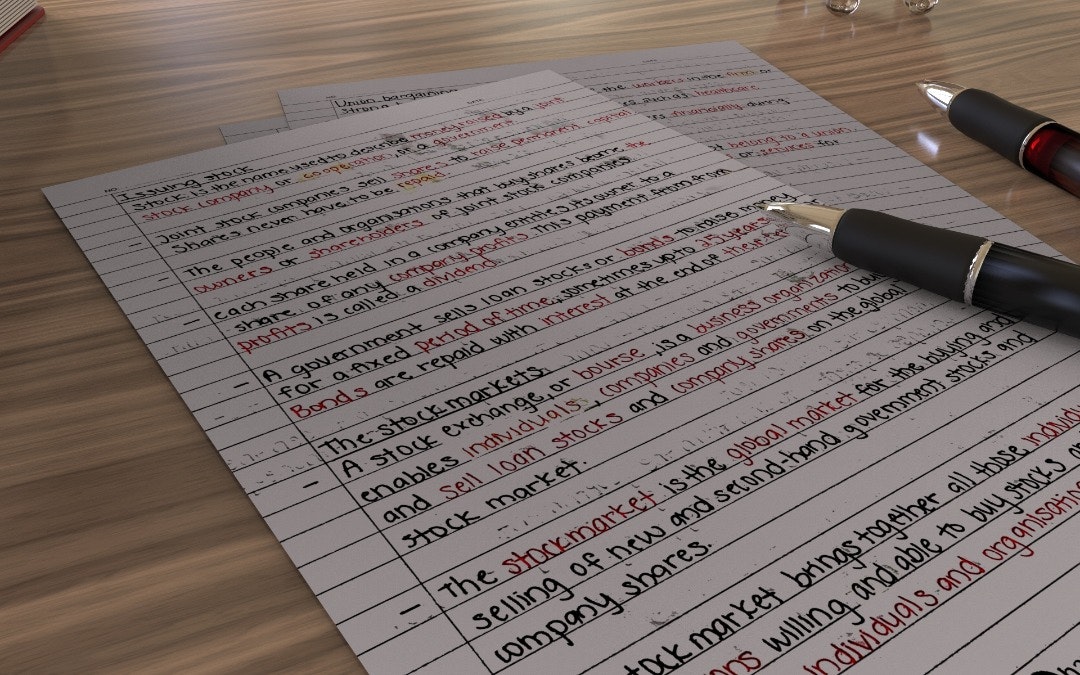 Union bargaining
the workers in the firm, or
such as healthcare
financially during
belong to a union
or services for
Issuing stock
Stock is the name used to describe money raised by a joint
stock company or cooperation, or a government.
Joint stock companies sell shares to raise permanent capital
shares never have to be repaid.
The people and organisations that buy shares become the
owners or shareholders of joint stock companies
each share held in a company entitles its owner to a
share of any company profits This payment from from
profits is called a dividend
A government sells loan stocks or bonds to raise
for a fixed period of time, sometimes up to 25 years
Bonds are repaid with interest at the end of
The stock markets.
A stock exchange, or bourse, is a business organization
enables individuals, companies and governments to
and sell loan stocks and company shares on the global
stock market.
The stock market is the global market for the buying and
selling of new and second-hand government stocks and
company shares.
stock market brings together all those
willing and able to buy stocks
individuals and